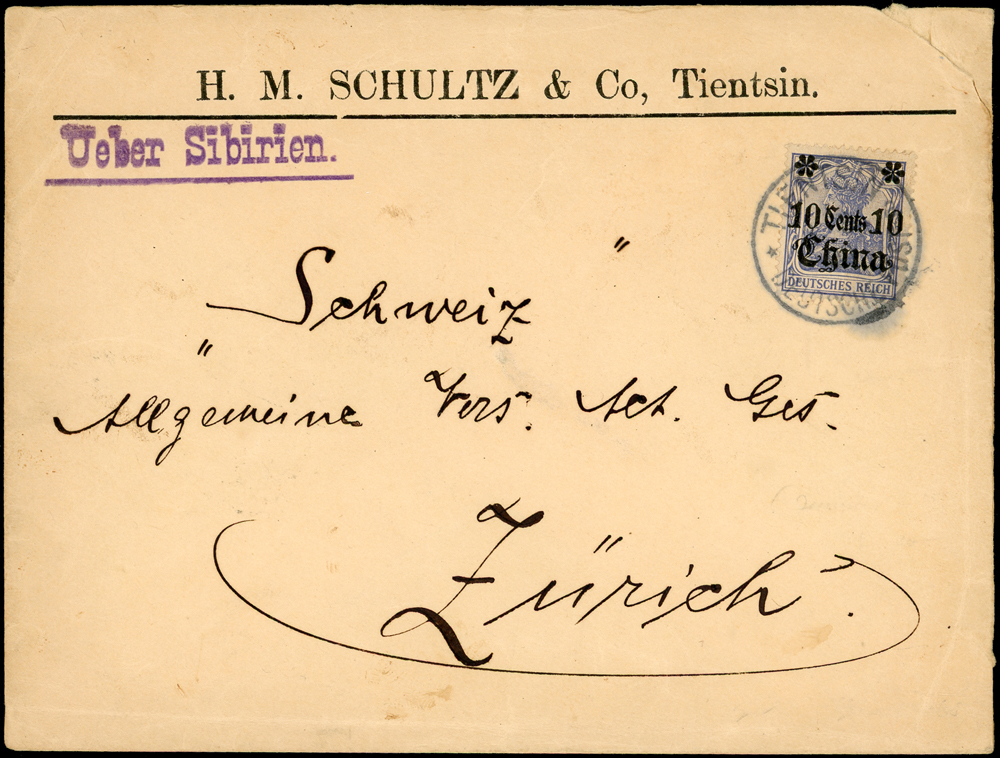 H. M. SCHULTZ & Co, Tientsin.
Ueber Sibirien.
10 Cents 10
China
DEUTSCHES REICH
"Schweiz"
Allgemeine Vers. Act. Ges.
Zürich.